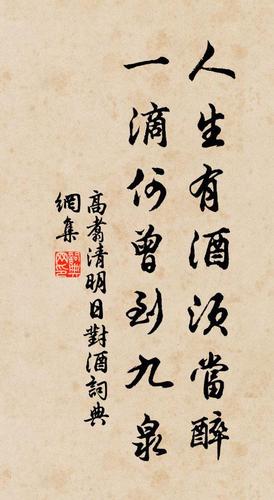 人生有酒須當醉
一滴何曾到九泉
高翥清明日對酒詞典
網集